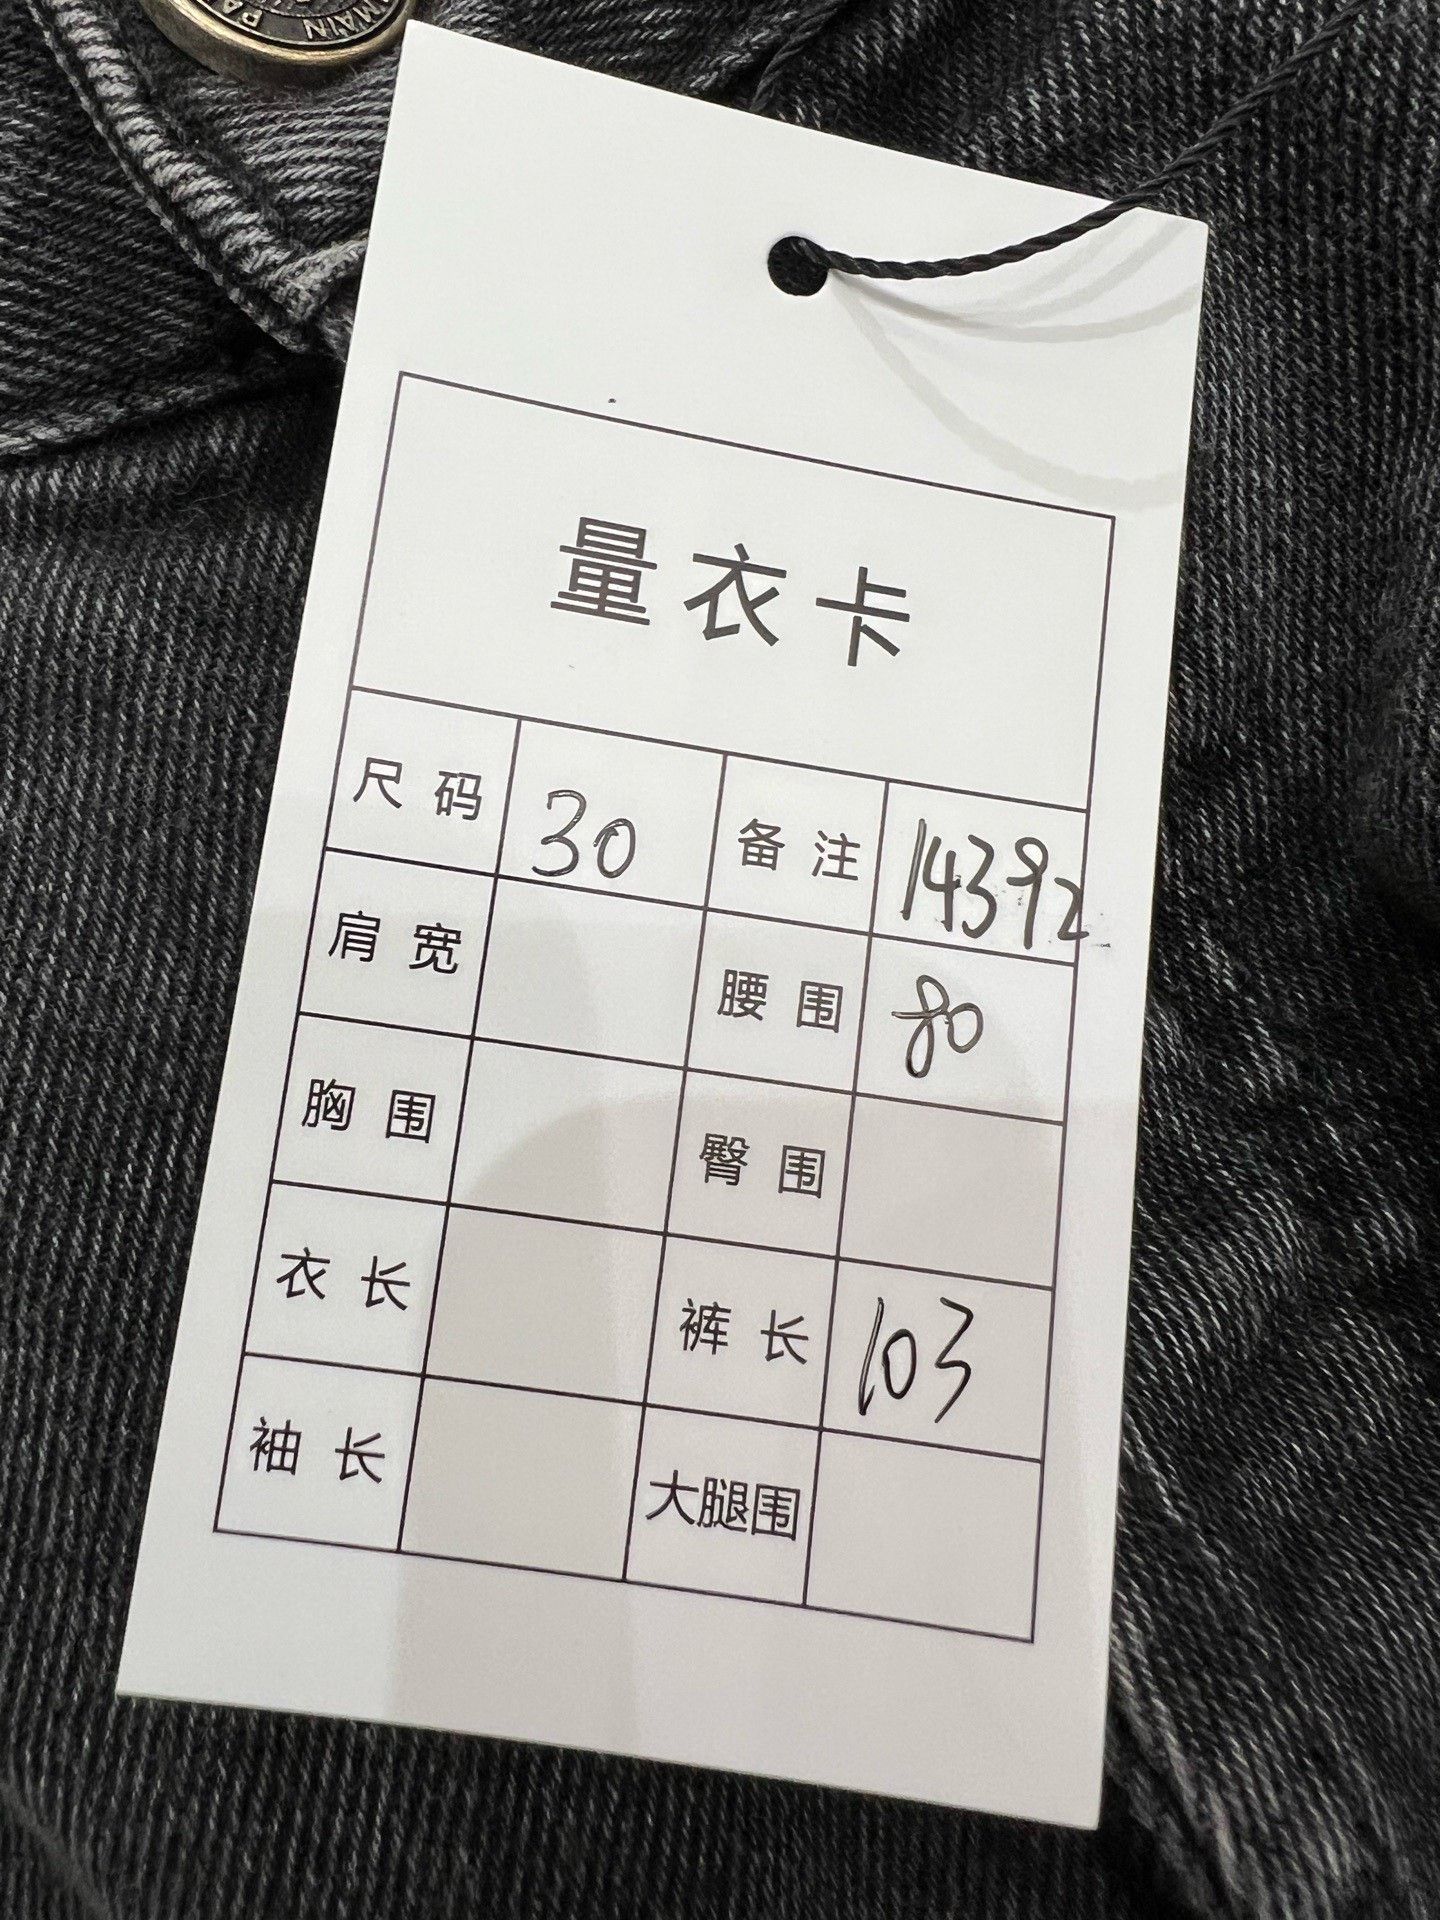 MAIN PA
量衣卡
尺码 30 备注 14392
肩宽 腰围 80
胸围 臀围
衣长 裤长 103
袖长 大腿围